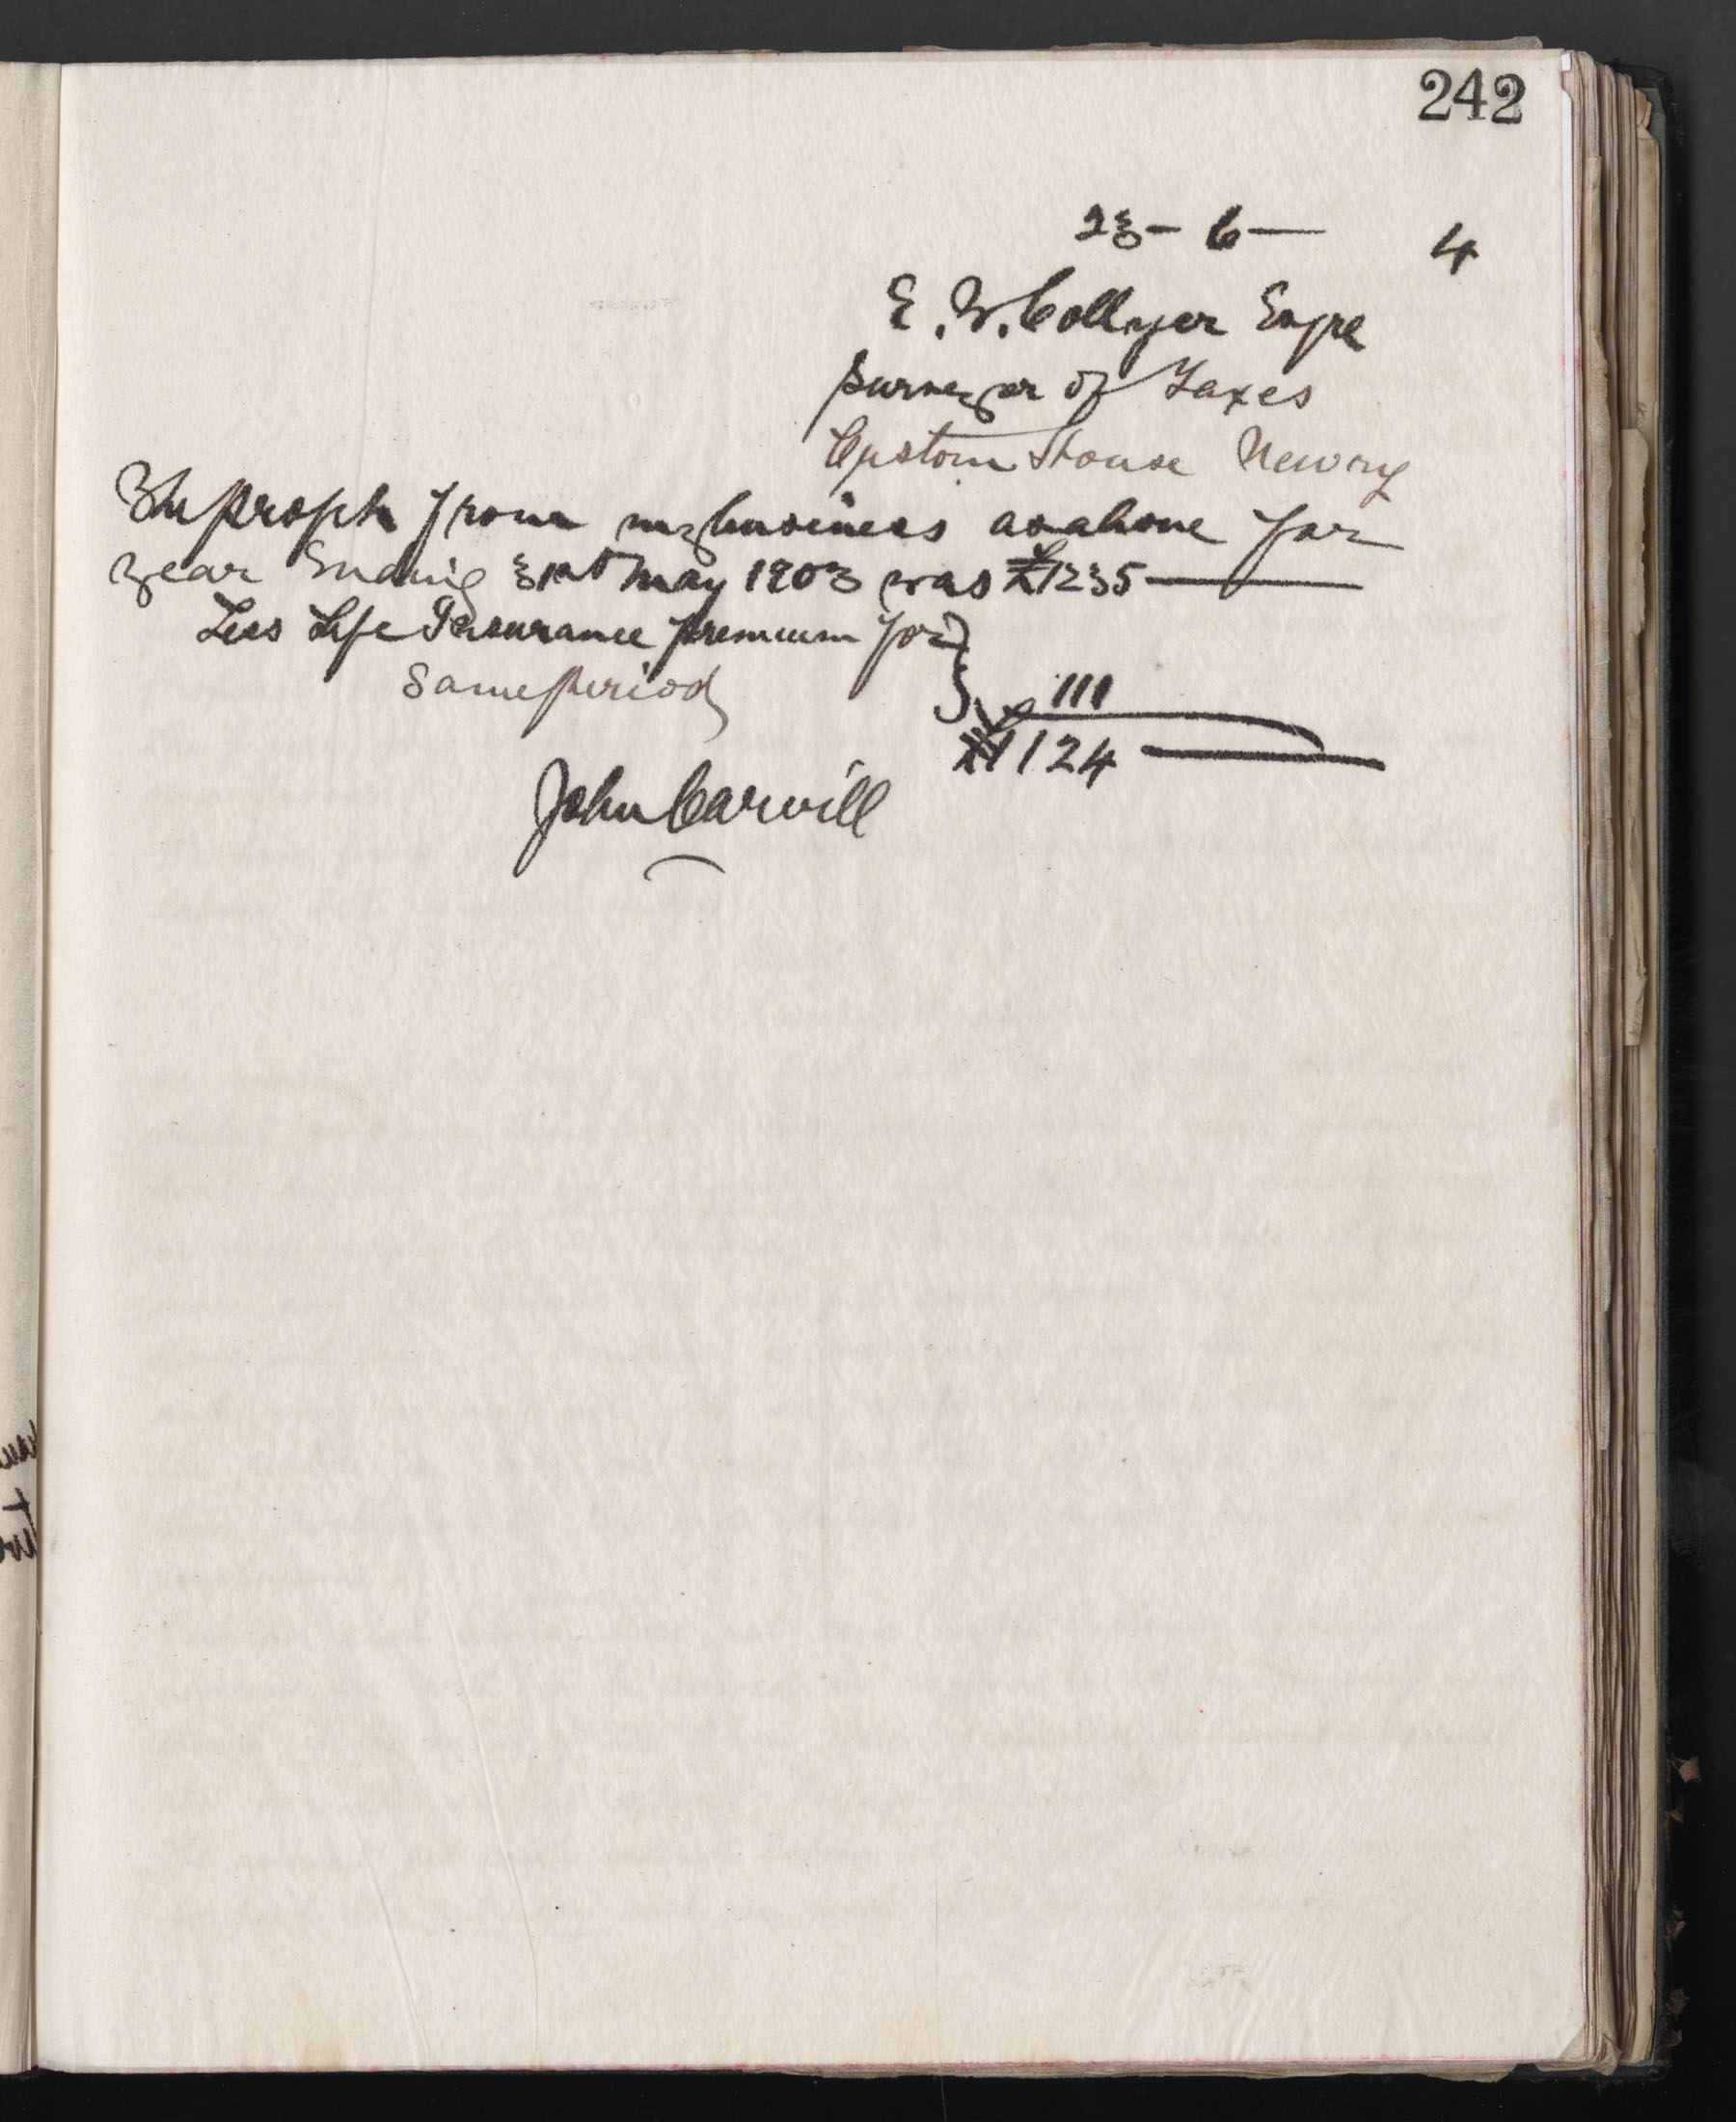 242
23 - 6 - 4
E. W. Collyer Esqre
Surveyor of Taxes
Custom House Newry
The profit from my business as above for
year Ending 31st May 1903 was £1235
Less Life Insurance premium for
same period 111
£1124
John Carvill